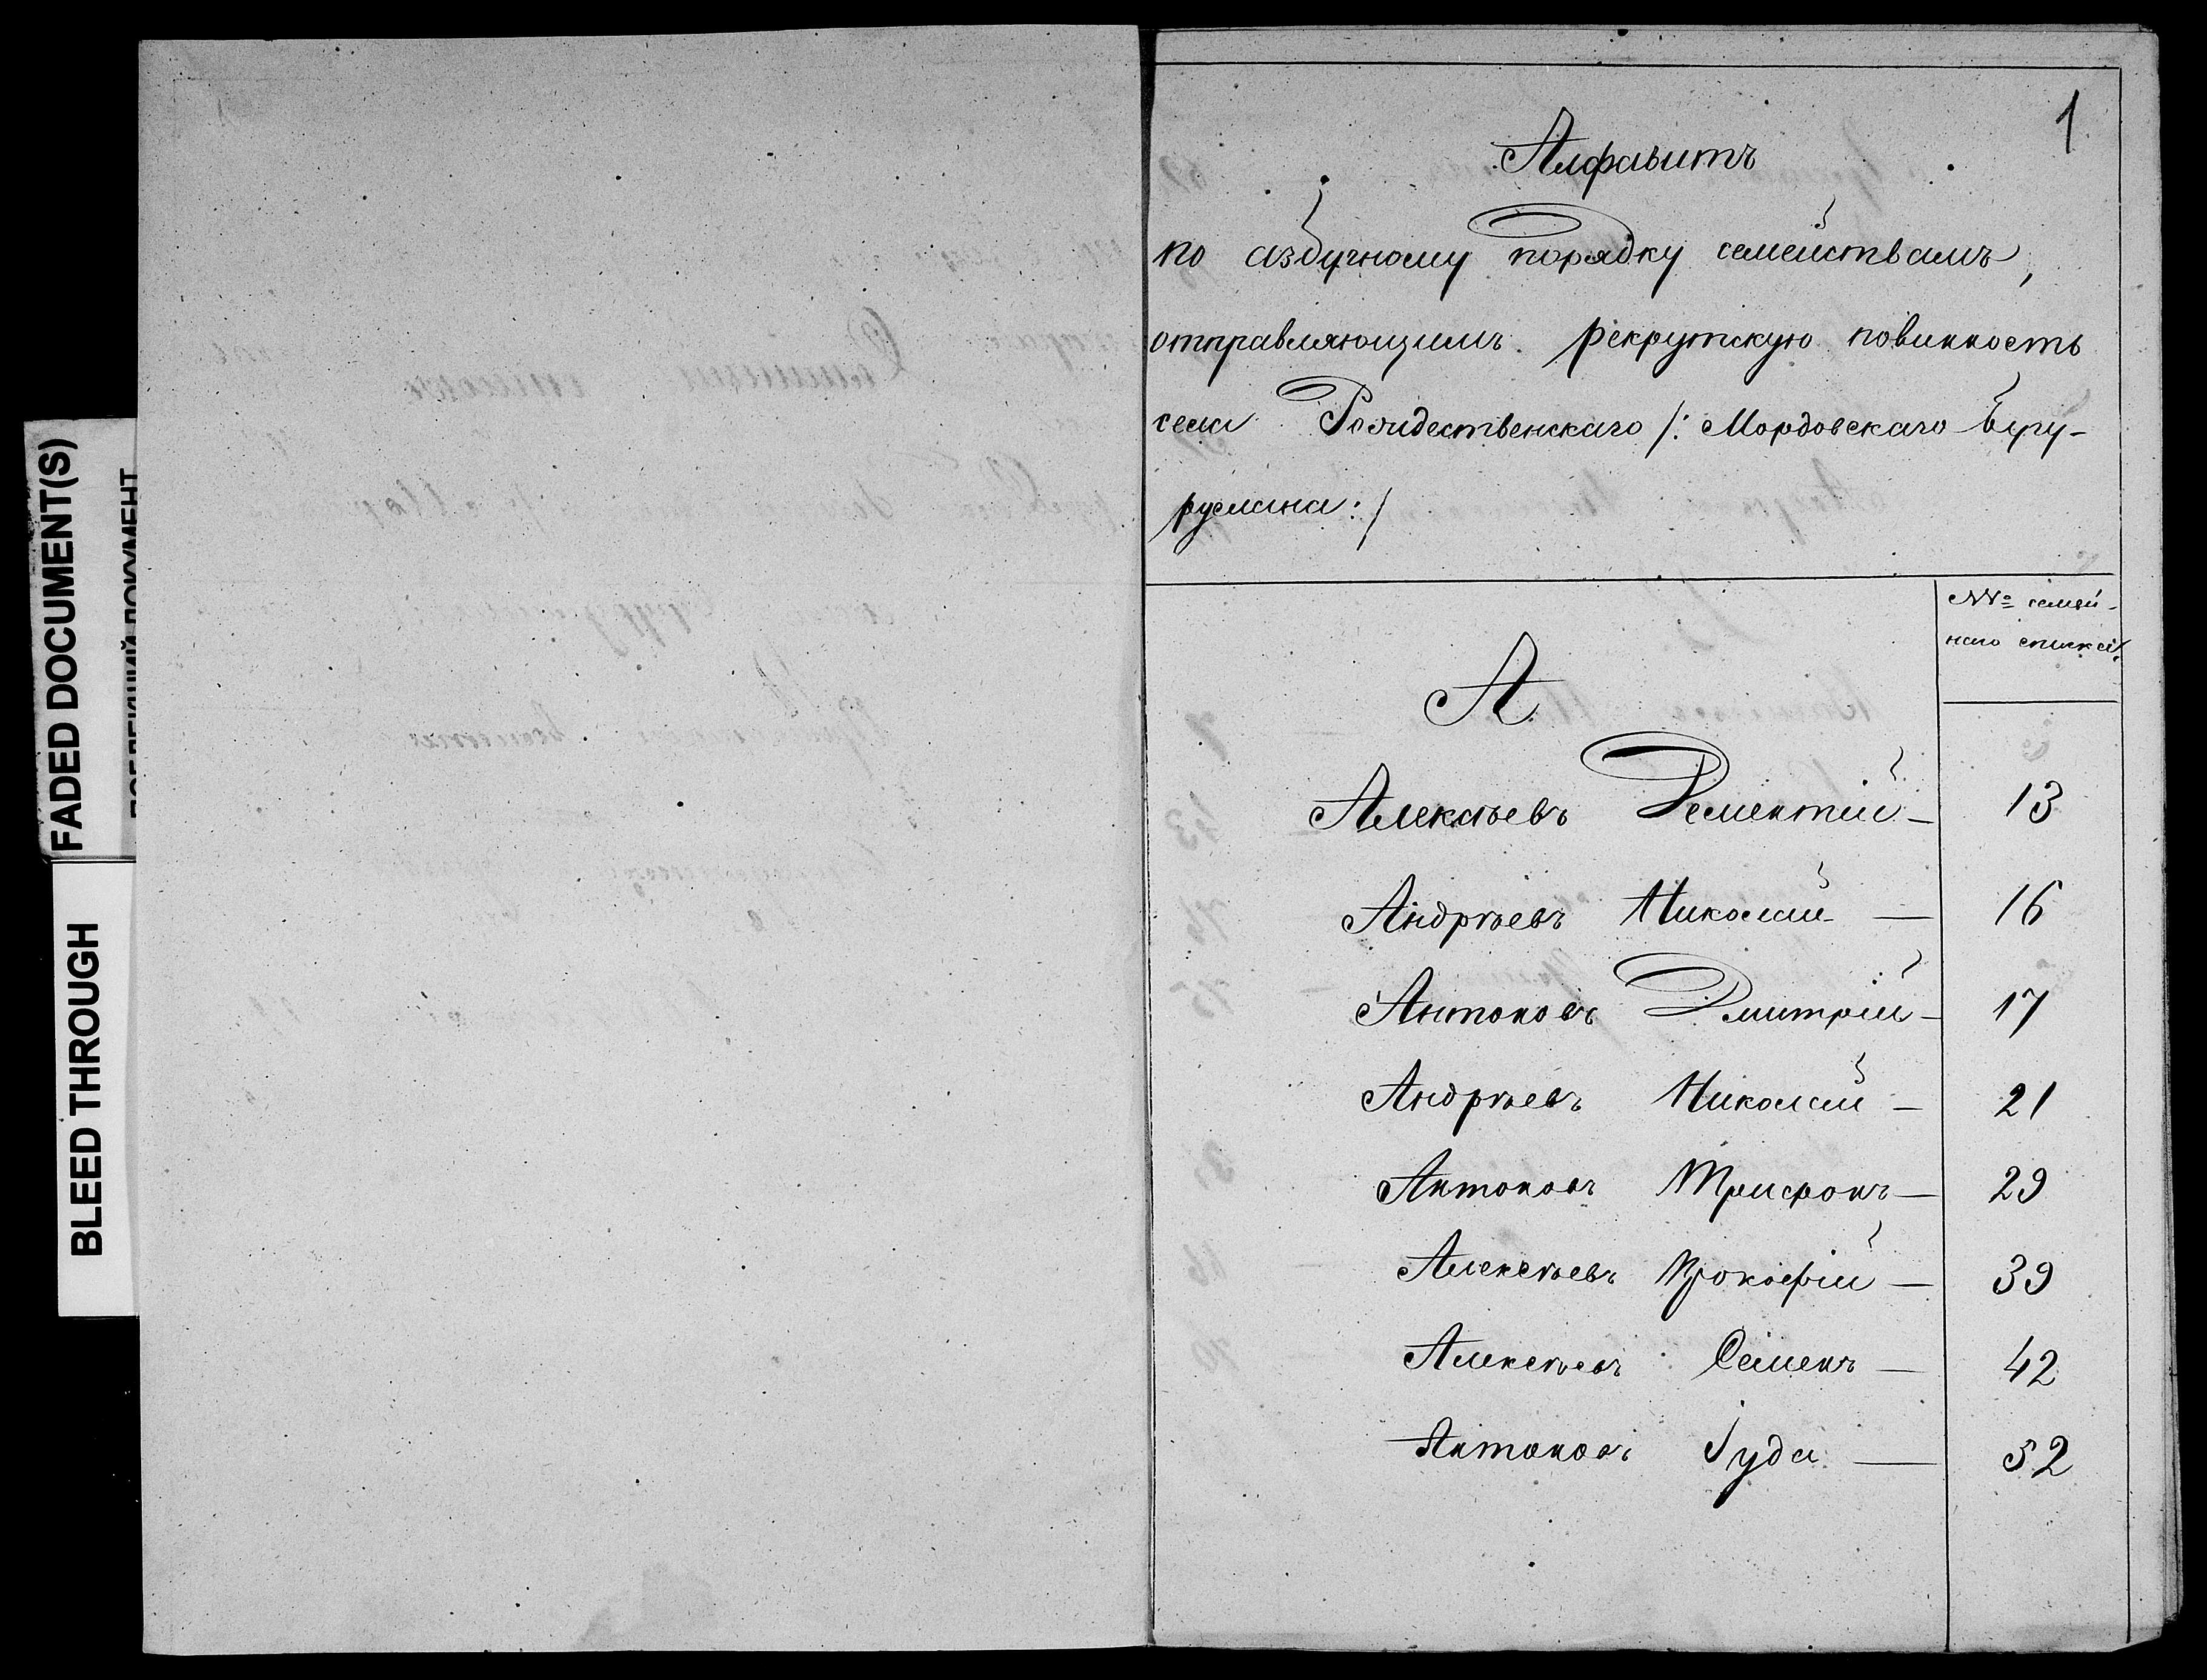 FADED DOCUMENT(S)
BLEED THROUGH
1
Алфавитъ
по азбучному порядку семействамъ,
отправляющимъ рекрутскую повинность
села Рождественскаго /: Мордовскаго Бугу-
руслана :/
№№ семей-
наго списка.
А
Алексѣевъ Дементій — 13
Андрѣевъ Николай — 16
Антоновъ Дмитрій — 17
Андрѣевъ Николай — 21
Антоновъ Трифонъ — 29
Алексѣевъ Прокофій — 39
Алексѣевъ Семенъ — 42
Антоновъ Іуда — 52